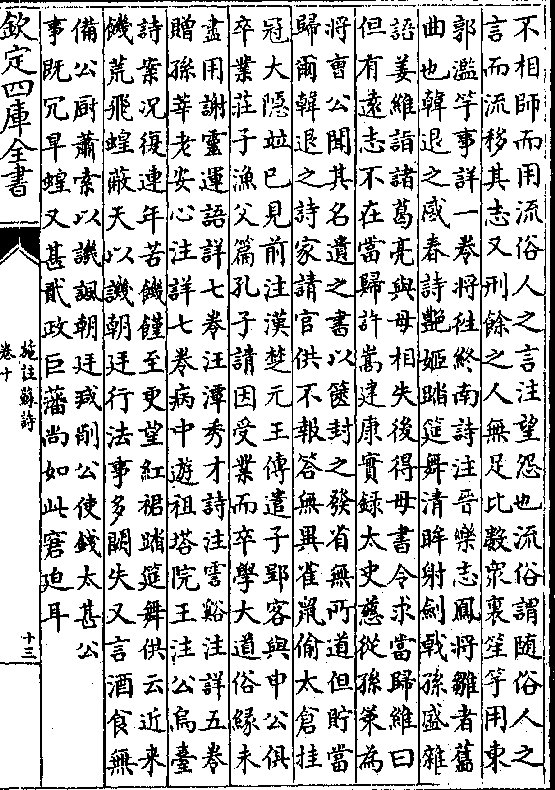 不相師而用流俗人之言注望怨也流俗謂随俗人之
言而流移其志又刑餘之人無足比數衆裏笙竽用東
郭濫竽事詳一卷將往終南詩注晉樂志鳳將雛者舊
曲也韓退之感春詩艶姬踏筵舞清眸射劍戟孫盛雜
語姜維詣諸葛亮與母相失後得母書令求當歸維曰
但有遠志不在當歸許嵩建康實録太史慈從孫策為
將曹公聞其名遺之書以篋封之發省無所道但貯當
歸爾韓退之詩家請官供不報答無異雀䑕偷太倉挂
冠大隱竝已見前注漢楚元王傳遣子郢客與申公俱
卒業莊子漁父篇孔子請因受業而卒學大道俗縁未
盡用謝靈運語詳七卷汪潭秀才詩注雲谿注詳五卷
贈孫莘老安心注詳七卷病中遊祖塔院王注公烏臺
詩案况復連年苦饑饉至更望紅裙踏筵舞供云近来
饑荒飛蝗蔽天以譏朝廷行法事多闕失又言酒食無
備公厨蕭索以譏諷朝廷㓕削公使錢太甚公
事既冗旱蝗又甚貳政巨藩尚如此窘迫耳
欽定四庫全書
施註蘇詩
卷十
十三